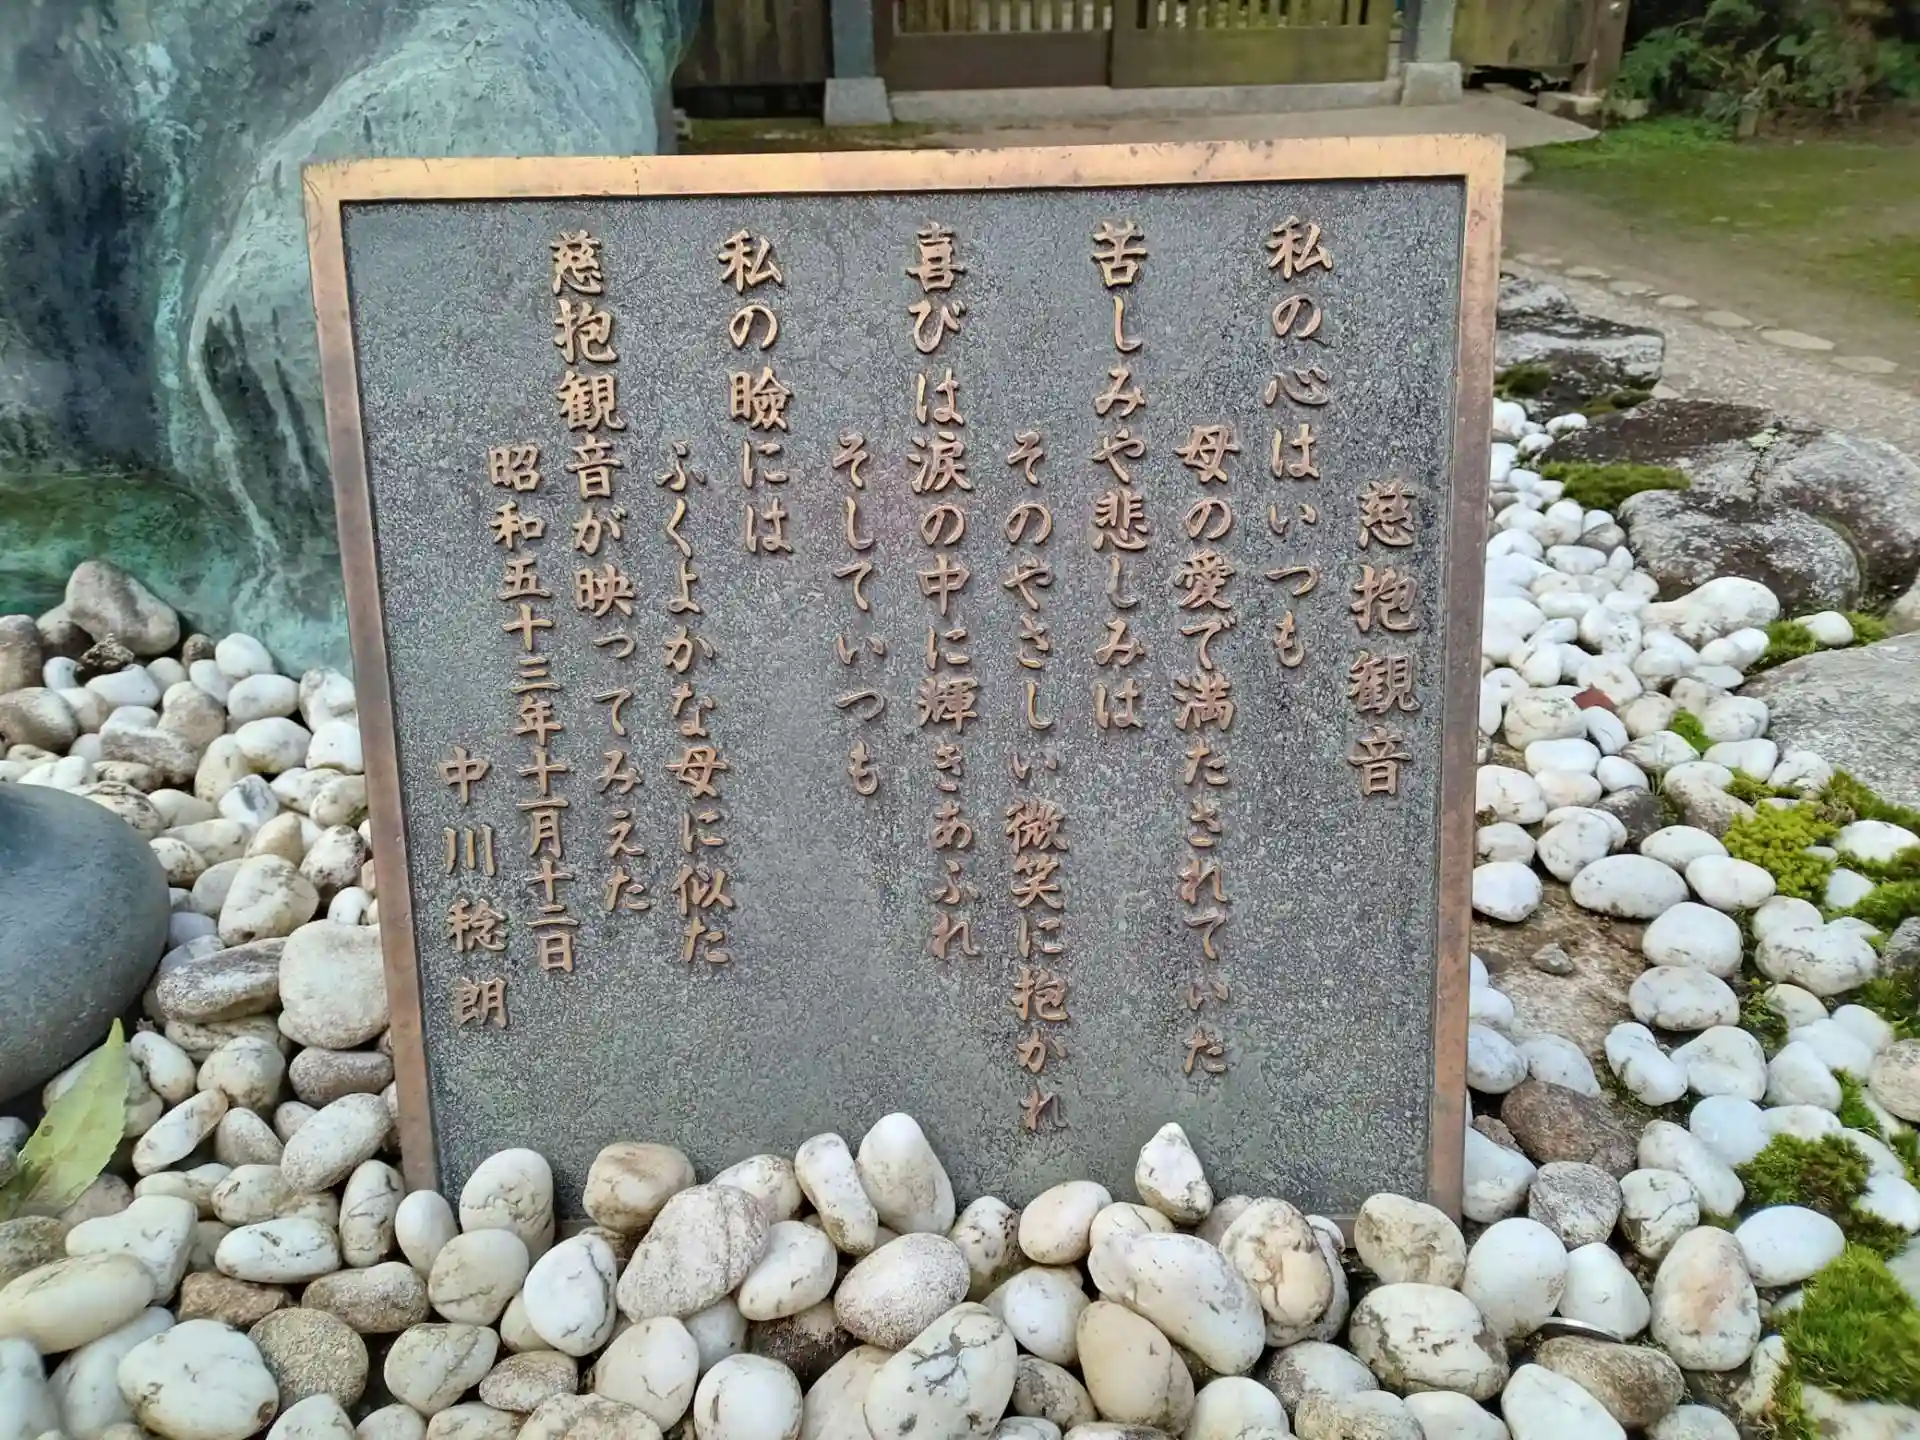 慈抱観音
私の心はいつも
母の愛で満たされていた
苦しみや悲しみは
そのやさしい微笑に抱かれ
喜びは涙の中に輝きあふれ
そしていつも
私の瞼には
ふくよかな母に似た
慈抱観音が映ってみえた
昭和五十三年十一月十二日
中川稔朗